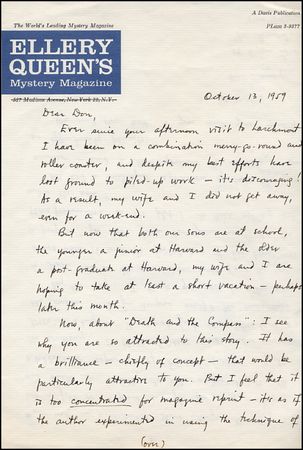 The World's Leading Mystery Magazine
A Davis Publication
PLaza 3-8377
ELLERY
QUEEN'S
Mystery Magazine
527 Madison Avenue, New York 22, N.Y.
October 13, 1959
Dear Don,
Ever since your afternoon visit to Larchmont
I have been on a combination merry-go-round and
roller coaster, and despite my best efforts have
lost ground to piled-up work – it's discouraging!
As a result, my wife and I did not get away,
even for a week-end.
But now that both our sons are at school,
the younger a junior at Harvard and the older
a post-graduate at Harvard, my wife and I are
hoping to take at least a short vacation – perhaps
later this month.
Now, about "Death and the Compass": I see
why you are so attracted to this story. It has
a brilliance – chiefly of concept – that would be
particularly attractive to you. But I feel that it
is too concentrated for magazine reprint – it's as if
the author experimented in using the technique of
(over)